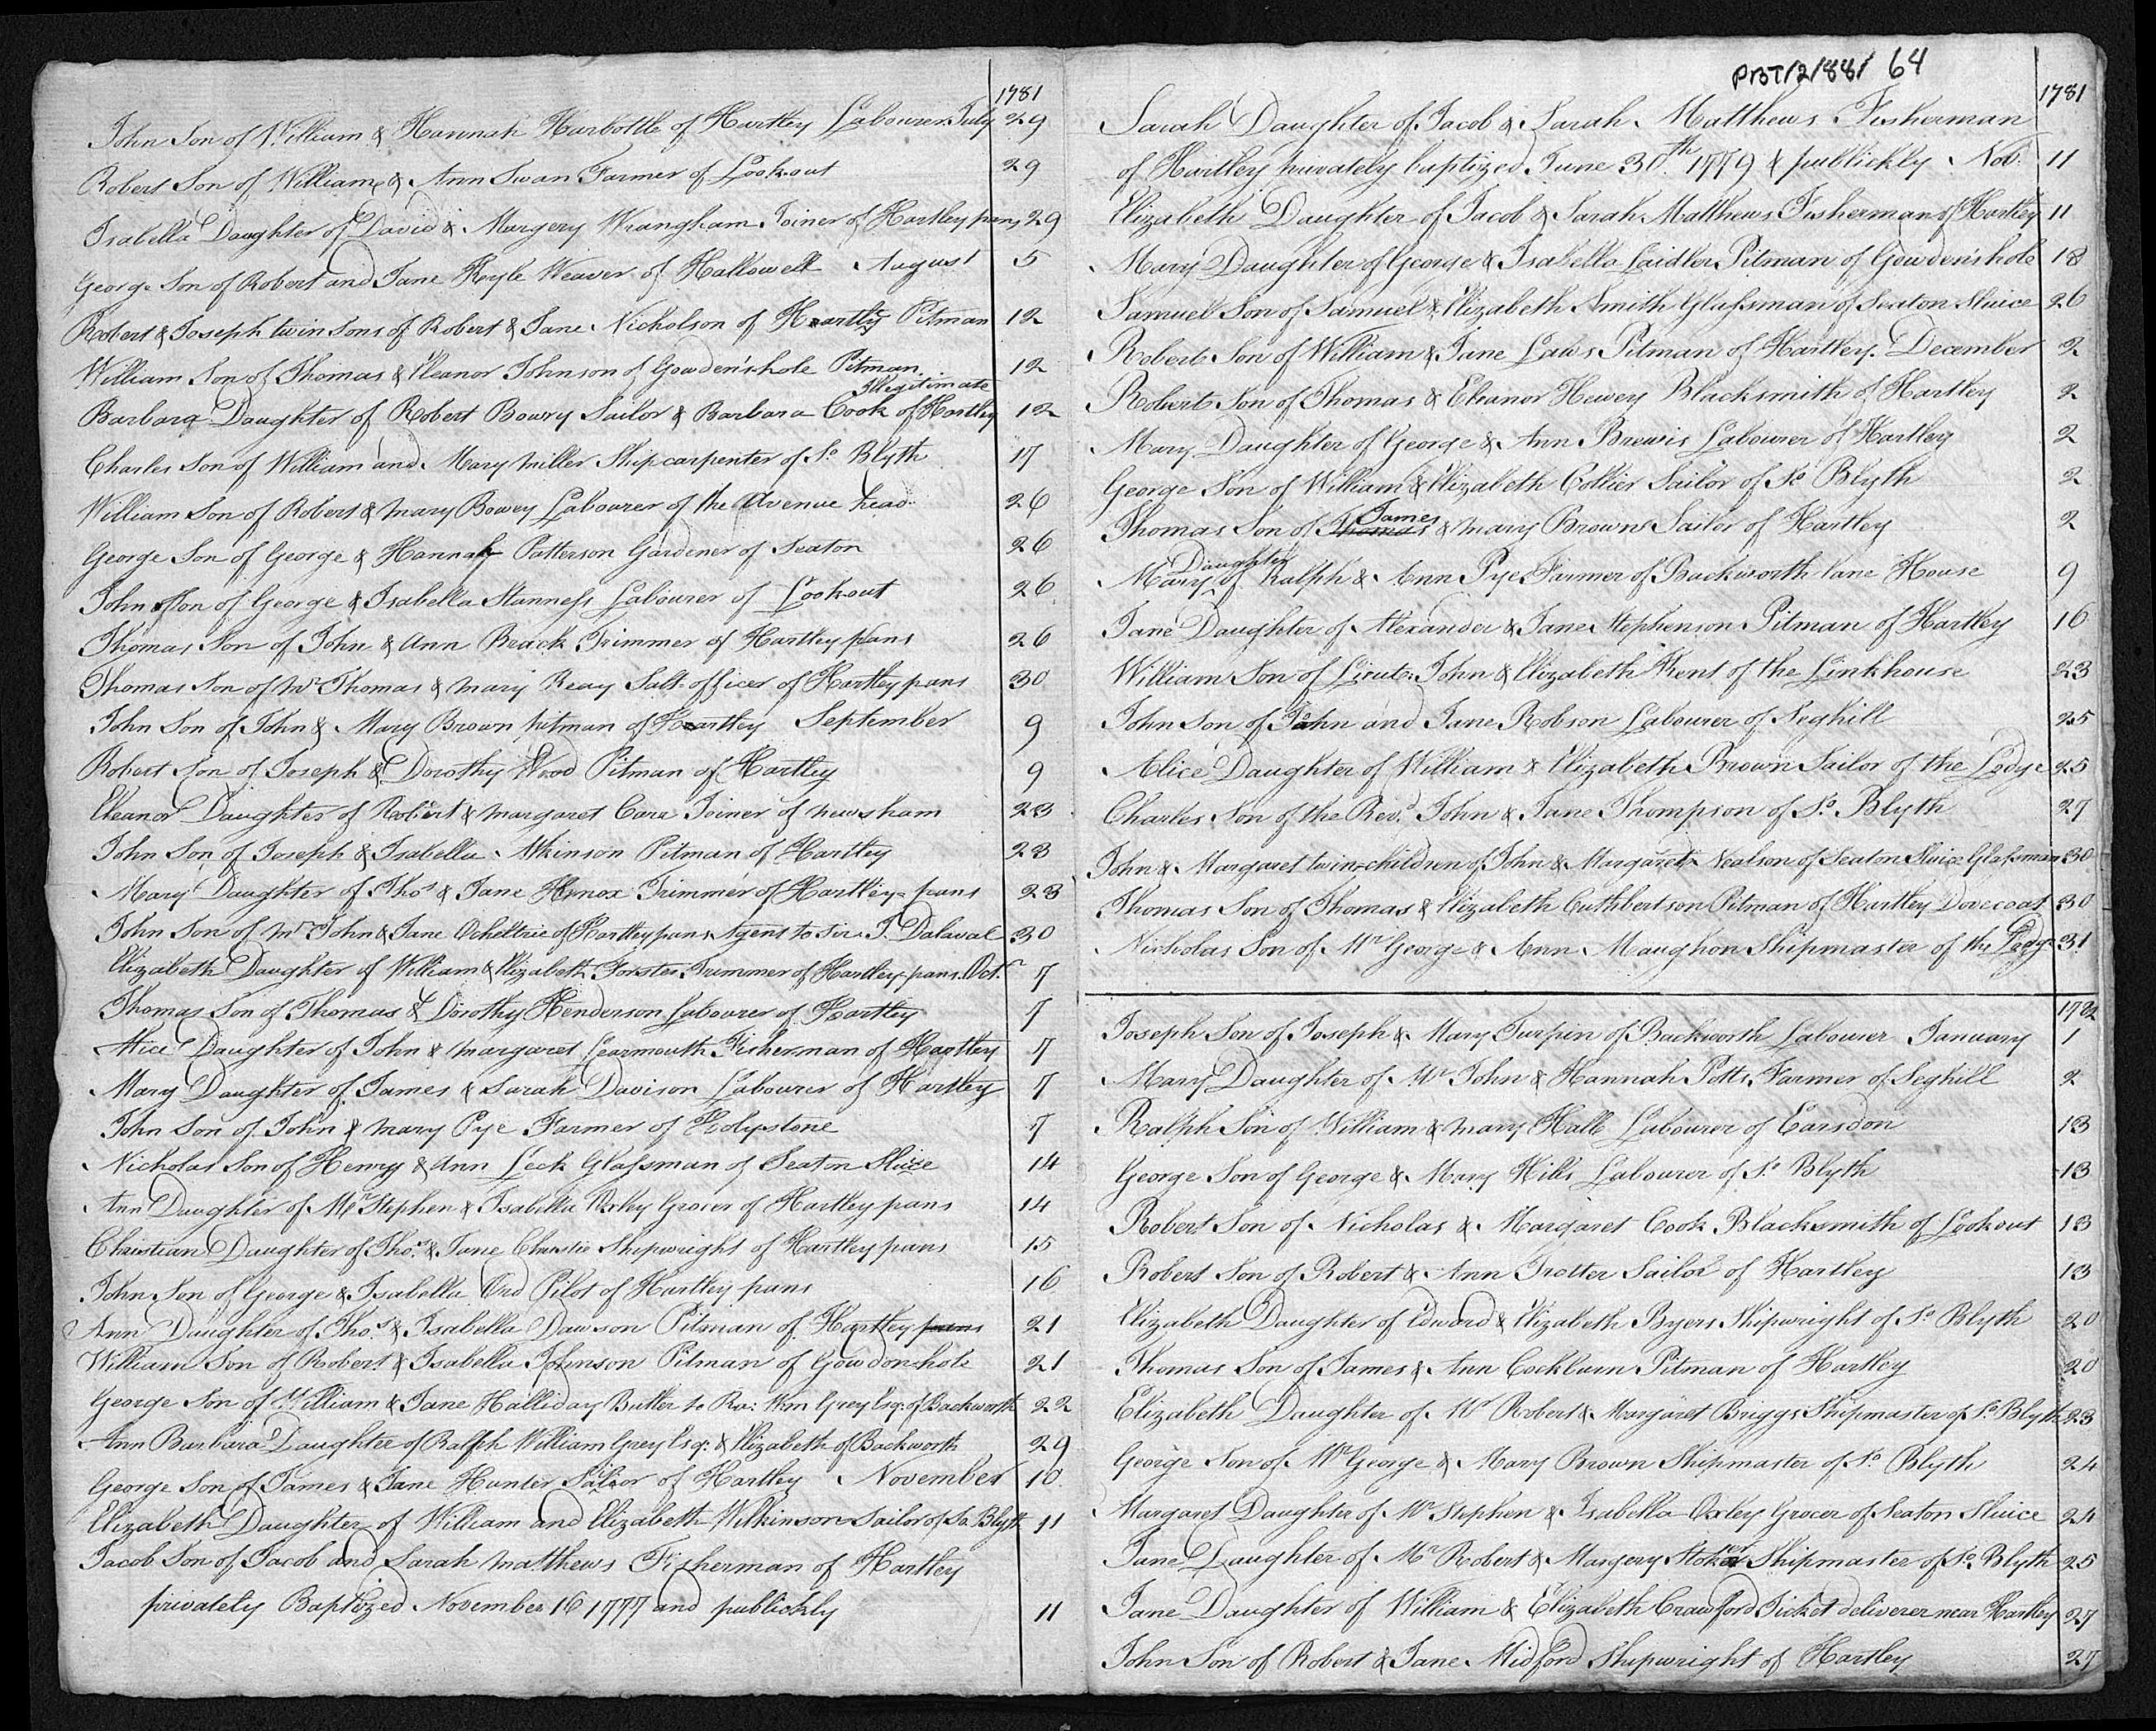 1781
John Son of William & Hannah Harbottle of Hartley Labourer July 29
Robert Son of William & Ann Swan Farmer of Lookout 29
Isabella Daughter of David & Margery Wrangham Joiner of Hartley pans 29
George Son of Robert and Jane Kyle Weaver of Hallowell August 5
Robert & Joseph twin Sons of Robert & Jane Nicholson of Hartley Pitman 12
William Son of Thomas & Eleanor Johnson of Gowden's hole Pitman 12
Illegitimate
Barbara Daughter of Robert Bowry Sailor & Barbara Cook of Hartley 12
Charles Son of William and Mary Miller Shipcarpenter of So. Blyth 17
William Son of Robert & Mary Bowey Labourer of the Avenue head 26
George Son of George & Hannah Patterson Gardener of Seaton 26
John Son of George & Isabella Stanness Labourer of Lookout 26
Thomas Son of John & Ann Brack Trimmer of Hartley pans 26
Thomas Son of Mr Thomas & Mary Reay Salt-officer of Hartley pans 30
John Son of John & Mary Brown Pitman of Hartley September 9
Robert Son of Joseph & Dorothy Wood Pitman of Hartley 9
Eleanor Daughter of Robert & Margaret Carr Joiner of Newsham 23
John Son of Joseph & Isabella Atkinson Pitman of Hartley 23
Mary Daughter of Thos & Jane Knox Trimmer of Hartley-pans 23
John Son of Mr John & Jane Ocheltrie of Hartley pans Agent to Sir J. Dalaval 30
Elizabeth Daughter of William & Elizabeth Forster Trimmer of Hartley-pans Octr 7
Thomas Son of Thomas & Dorothy Henderson Labourer of Hartley 7
Alice Daughter of John & Margaret Learmouth Fisherman of Hartley 7
Mary Daughter of James & Sarah Davison Labourer of Hartley 7
John Son of John & Mary Pye Farmer of Holystone 7
Nicholas Son of Henry & Ann Leck Glassman of Seaton Sluice 14
Ann Daughter of Mr Stephen & Isabella Oxley Grocer of Hartley pans 14
Christian Daughter of Thos. & Jane Christie Shipwright of Hartley pans 15
John Son of George & Isabella Ord Pilot of Hartley pans 16
Ann Daughter of Thos. & Isabella Dawson Pitman of Hartley pans 21
William Son of Robert & Isabella Johnson Pitman of Gowdon-hole 21
George Son of William & Jane Halliday Butler to Ra: Wm Grey Esq: of Backworth 22
Ann Barbara Daughter of Ralph William Grey Esq: & Elizabeth of Backworth 29
George Son of James & Jane Hunter Sailor of Hartley November 10
Elizabeth Daughter of William and Elizabeth Wilkinson Sailor of So. Blyth 11
Jacob Son of Jacob and Sarah Matthews Fisherman of Hartley
privately Baptized November 16 1777 and publickly 11
PBT/2/881 64
1781
Sarah Daughter of Jacob & Sarah Matthews Fisherman
of Hartley privately baptized June 30th. 1779 & publickly Nov. 11
Elizabeth Daughter of Jacob & Sarah Matthews Fisherman of Hartley 11
Mary Daughter of George & Isabella Laidler Pitman of Gowden's hole 18
Samuel Son of Samuel & Elizabeth Smith Glassman of Seaton Sluice 26
Robert Son of William & Jane Laws Pitman of Hartley. December 2
Robert Son of Thomas & Eleanor Hewey Blacksmith of Hartley 2
Mary Daughter of George & Ann Brewis Labourer of Hartley 2
George Son of William & Elizabeth Collier Sailor of So. Blyth 2
James
Thomas Son of Thomas & Mary Brown Sailor of Hartley 2
Daughter
Mary of Ralph & Ann Pye Farmer of Backworth lane House 9
Jane Daughter of Alexander & Jane Stephenson Pitman of Hartley 16
William Son of Lieut. John & Elizabeth Kent of the Linkhouse 23
John Son of John and Jane Robson Labourer of Seghill 25
Alice Daughter of William & Elizabeth Brown Sailor of the Lodge 25
Charles Son of the Revd. John & Jane Thompson of So. Blyth 27
John & Margaret twin-children of John & Margaret Nealson of Seaton Sluice Glassman 30
Thomas Son of Thomas & Elizabeth Cuthbertson Pitman of Hartley Dovecoat 30
Nicholas Son of Mr George & Ann Maughon Shipmaster of the Lodge 31
1782
Joseph Son of Joseph & Mary Turpin of Backworth Labourer January 1
Mary Daughter of Mr John & Hannah Potts Farmer of Seghill 2
Ralph Son of William & Mary Hall Labourer of Earsdon 13
George Son of George & Mary Hills Labourer of So. Blyth 13
Robert Son of Nicholas & Margaret Cook Blacksmith of Lookout 13
Robert Son of Robert & Ann Trotter Sailor of Hartley 13
Elizabeth Daughter of Edward & Elizabeth Byers Shipwright of So. Blyth 20
Thomas Son of James & Ann Cockburn Pitman of Hartley 20
Elizabeth Daughter of Mr Robert & Margaret Briggs Shipmaster of So. Blyth 23
George Son of Mr George & Mary Brown Shipmaster of So. Blyth 24
Margaret Daughter of Mr Stephen & Isabella Oxley Grocer of Seaton Sluice 24
Jane Daughter of Mr Robert & Margery Stoker Shipmaster of So. Blyth 25
Jane Daughter of William & Elizabeth Crawford Ticket deliverer near Hartley 27
John Son of Robert & Jane Midford Shipwright of Hartley 27